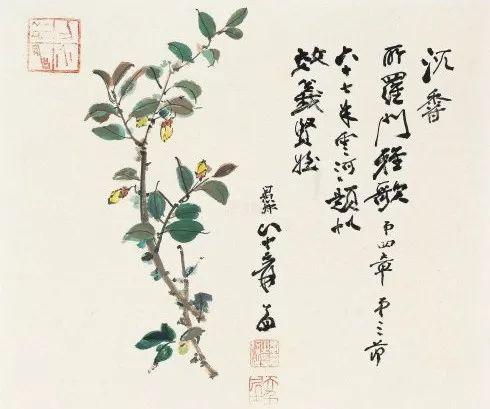 沉香
所羅門雅歌 第四章 第三節
六十七年雲河題似
義賢姪
八十叟爰